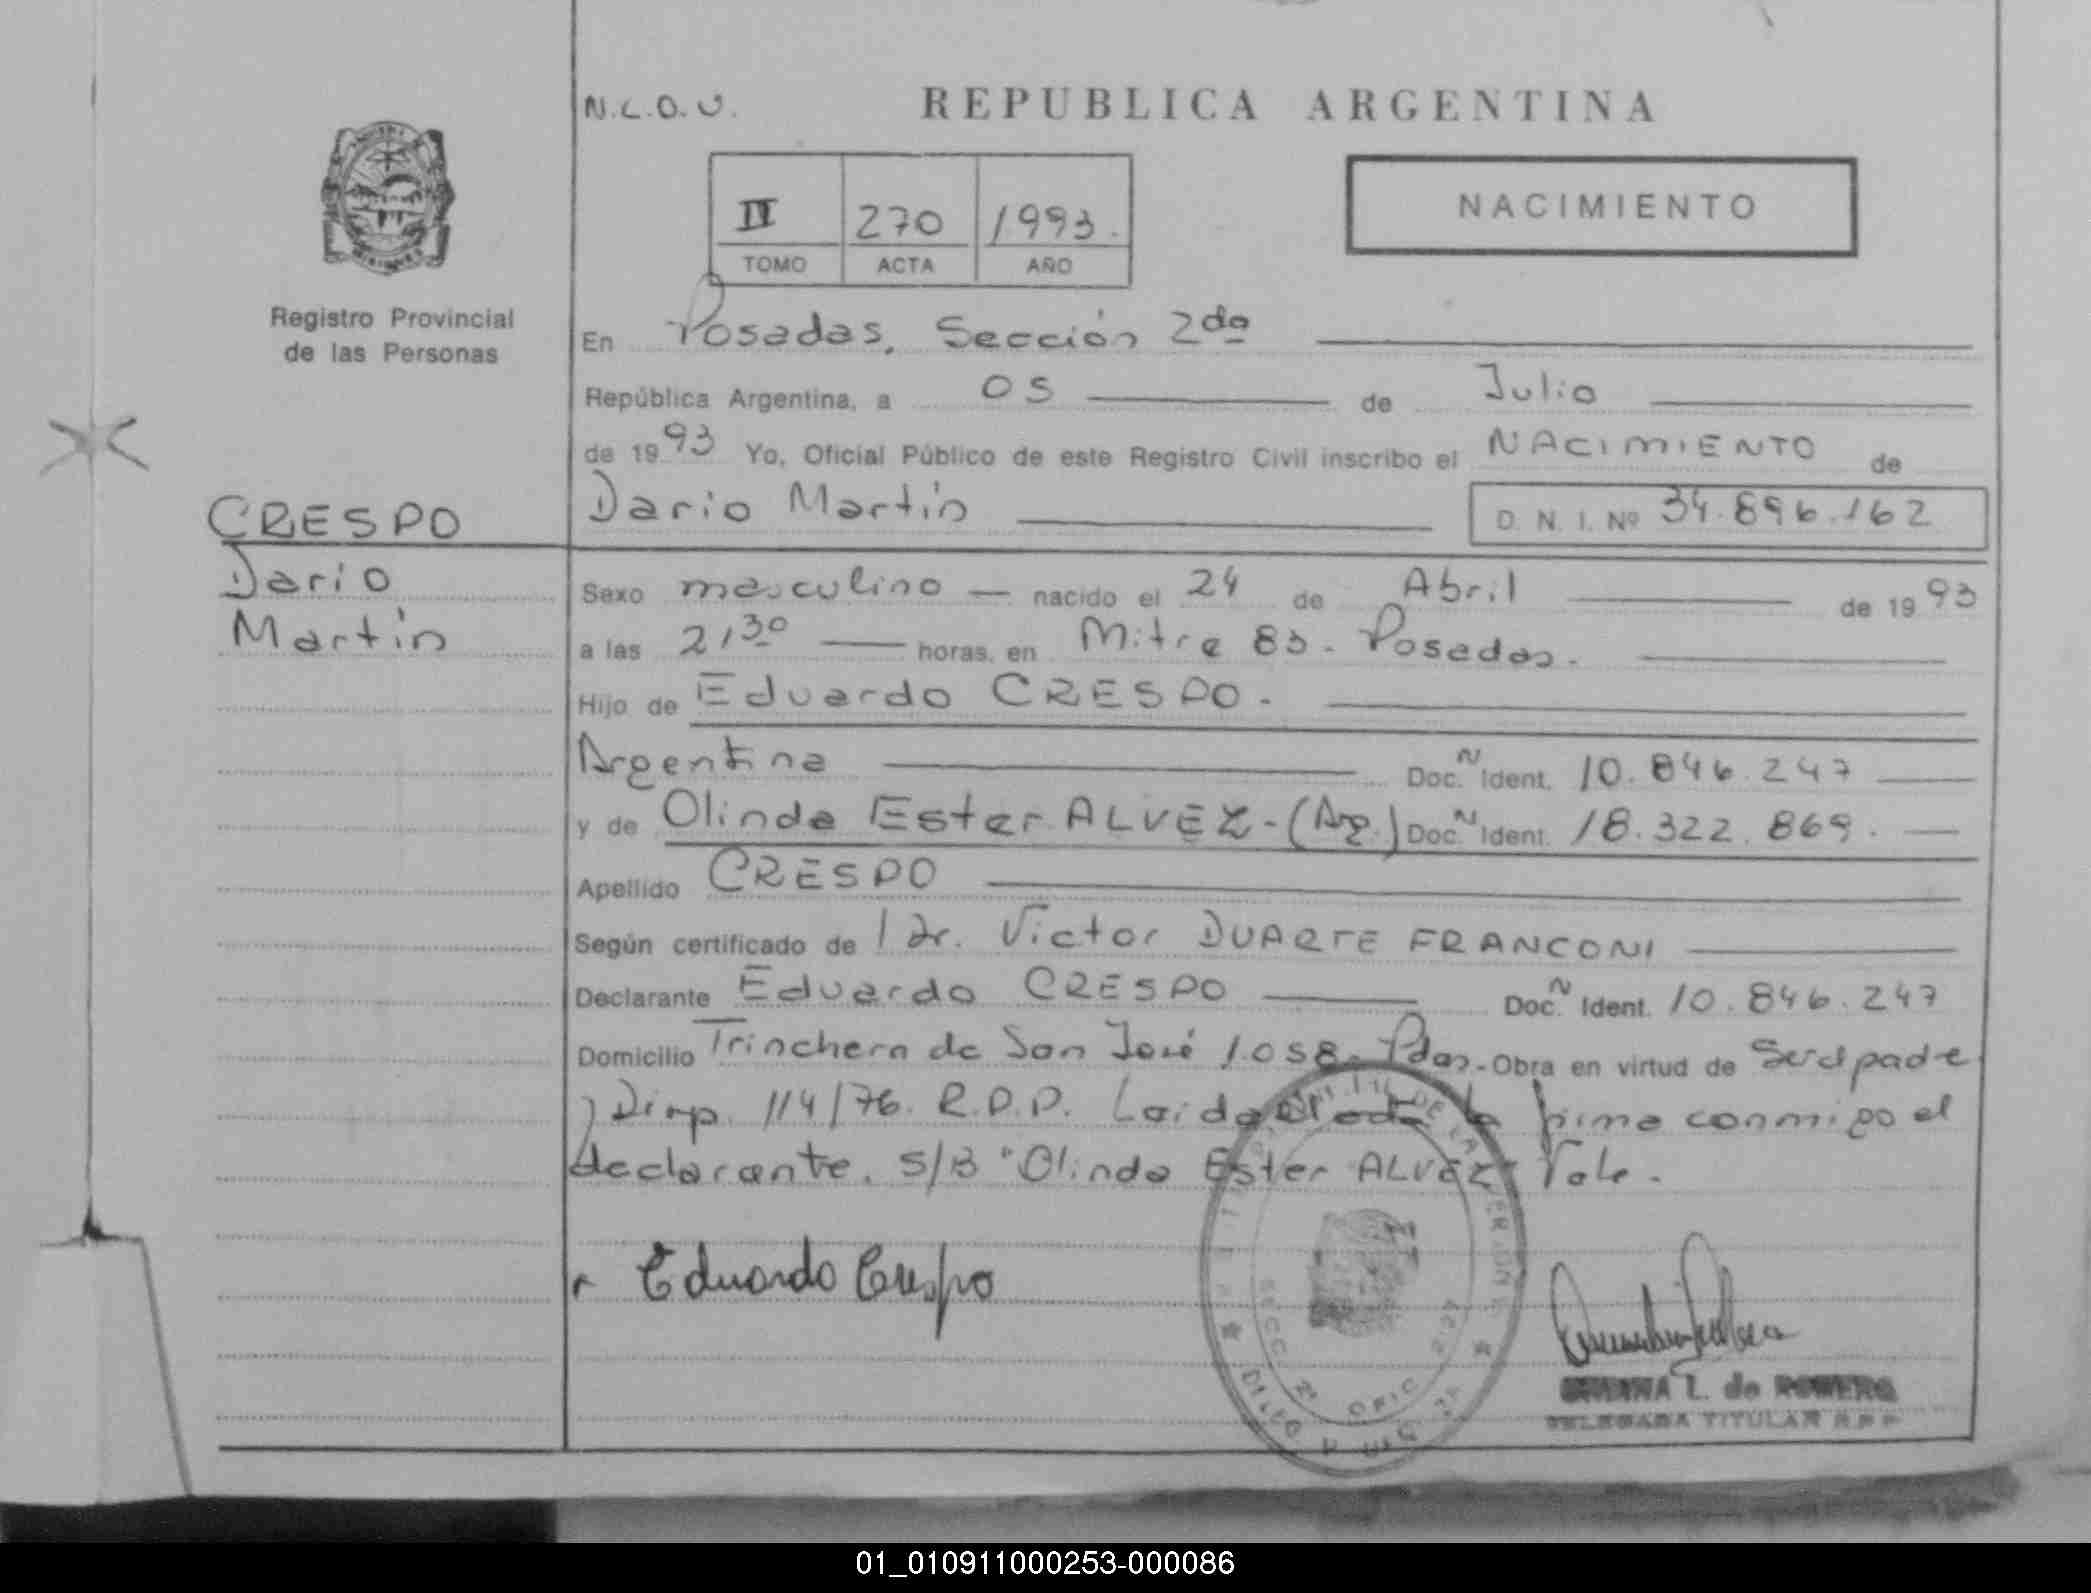 N.L.O.U.
REPUBLICA ARGENTINA
II 270 1993.
TOMO ACTA AÑO
NACIMIENTO
Registro Provincial
de las Personas
En Posadas, Sección 2da
República Argentina, a 05 de Julio
de 1993 Yo, Oficial Público de este Registro Civil inscribo el NACIMIENTO de
CRESPO
Dario Martín
D. N. I. Nº 34.896.162
Dario
Martín
Sexo masculino — nacido el 24 de Abril de 1993
a las 21,30 horas, en Mitre 83. Posadas.
Hijo de Eduardo CRESPO.
Argentina Doc. N Ident. 10.846.247
y de Olinda Ester ALVEZ - (Arg.) Doc. N Ident. 18.322.869.
Apellido CRESPO
Según certificado de Dr. Victor DUARTE FRANCONI
Declarante Eduardo CRESPO Doc. N Ident. 10.846.247
Domicilio Trinchera de San José 1.058. Pdas. Obra en virtud de Ser el padre
y Disp. 114/76. R.P.P. Leída el acta la firma conmigo el
declarante. S/B "Olinda Ester ALVEZ" Vale.
Eduardo Crespo
SECC. 2ª OFIC.
T. de ROMERO
DELEGADA TITULAR R.P.P.
01_010911000253-000086